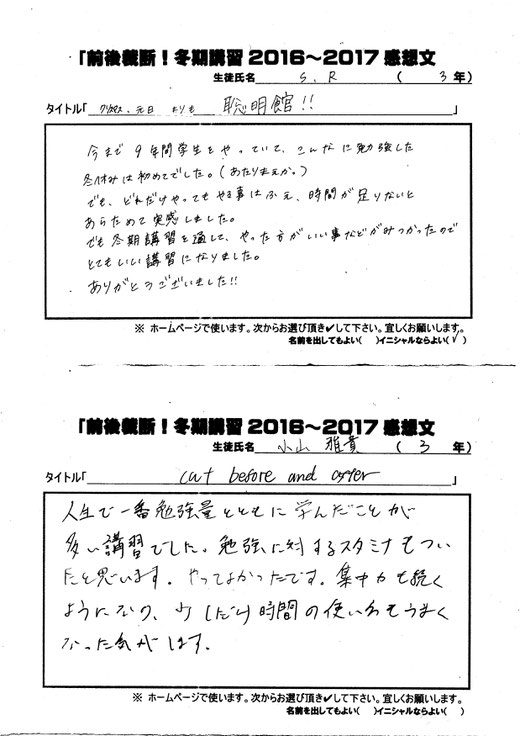 「前後裁断!冬期講習2016〜2017感想文
生徒氏名 S.R ( 3 年)
タイトル「クリスマス、元日よりも 聡明館!!」
今まで9年間学生をやっていて、こんなに勉強した
冬休みは初めてでした。(あたりまえか。)
でも、どれだけやってもやる事はふえ、時間が足りないと
あらためて実感しました。
でも冬期講習を通して、やった方がいい事などがみつかったので
とてもいい講習になりました。
ありがとうございました!!
※ ホームページで使います。次からお選び頂き✔して下さい。宜しくお願いします。
名前を出してもよい( )イニシャルならよい(✓)
「前後裁断!冬期講習2016〜2017感想文
生徒氏名 小山 雅貴 ( 3 年)
タイトル「 cut before and after 」
人生で一番勉強量とともに学んだことが
多い講習でした。勉強に対するスタミナもつい
たと思います。やってよかったです。集中力も続く
ようになり、少し(だけ)時間の使い方もうまく
なった気がします。
※ ホームページで使います。次からお選び頂き✔して下さい。宜しくお願いします。
名前を出してもよい( )イニシャルならよい( )